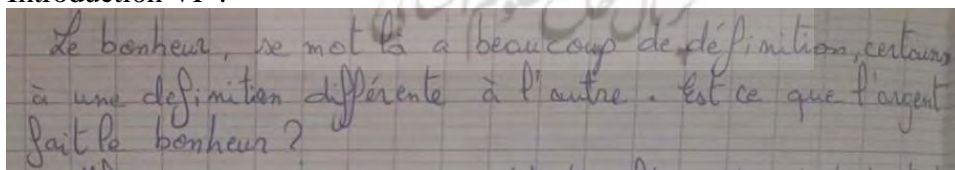 Le bonheur, se mot là a beaucoup de définition, certains
à une definition différente à l'autre. Est ce que l'argent
fait le bonheur ?